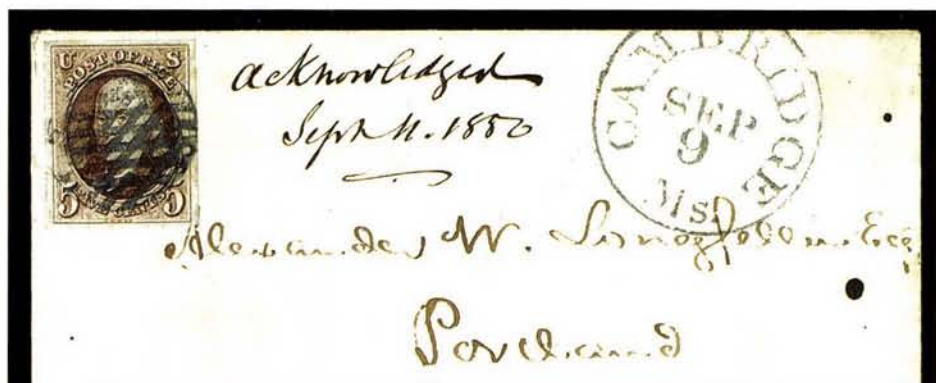 U S
POST OFFICE
5 FIVE CENTS 5
acknowledged
Sept 11. 1850
CAMBRIDGE
SEP
9
Ms.
Alexander W. Longfellow Esq
Portland